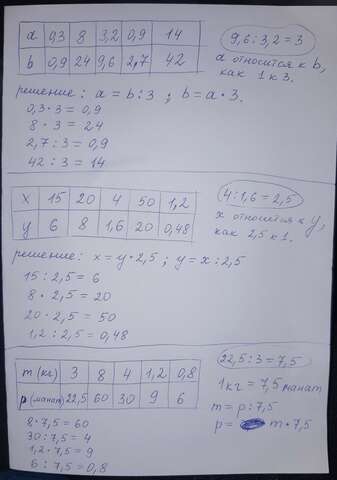 a 0,3 8 3,2 0,9 14
b 0,9 24 9,6 2,7 42
9,6 : 3,2 = 3
a относится к b,
как 1 к 3.
решение: a = b : 3 ; b = a · 3.
0,3 · 3 = 0,9
8 · 3 = 24
2,7 : 3 = 0,9
42 : 3 = 14
x 15 20 4 50 1,2
y 6 8 1,6 20 0,48
4 : 1,6 = 2,5
x относится к y,
как 2,5 к 1.
решение: x = y · 2,5 ; y = x : 2,5
15 : 2,5 = 6
8 · 2,5 = 20
20 · 2,5 = 50
1,2 : 2,5 = 0,48
m (кг) 3 8 4 1,2 0,8
p (манат) 22,5 60 30 9 6
22,5 : 3 = 7,5
1 кг = 7,5 манат
m = p : 7,5
p = m · 7,5
8 · 7,5 = 60
30 : 7,5 = 4
1,2 · 7,5 = 9
6 : 7,5 = 0,8